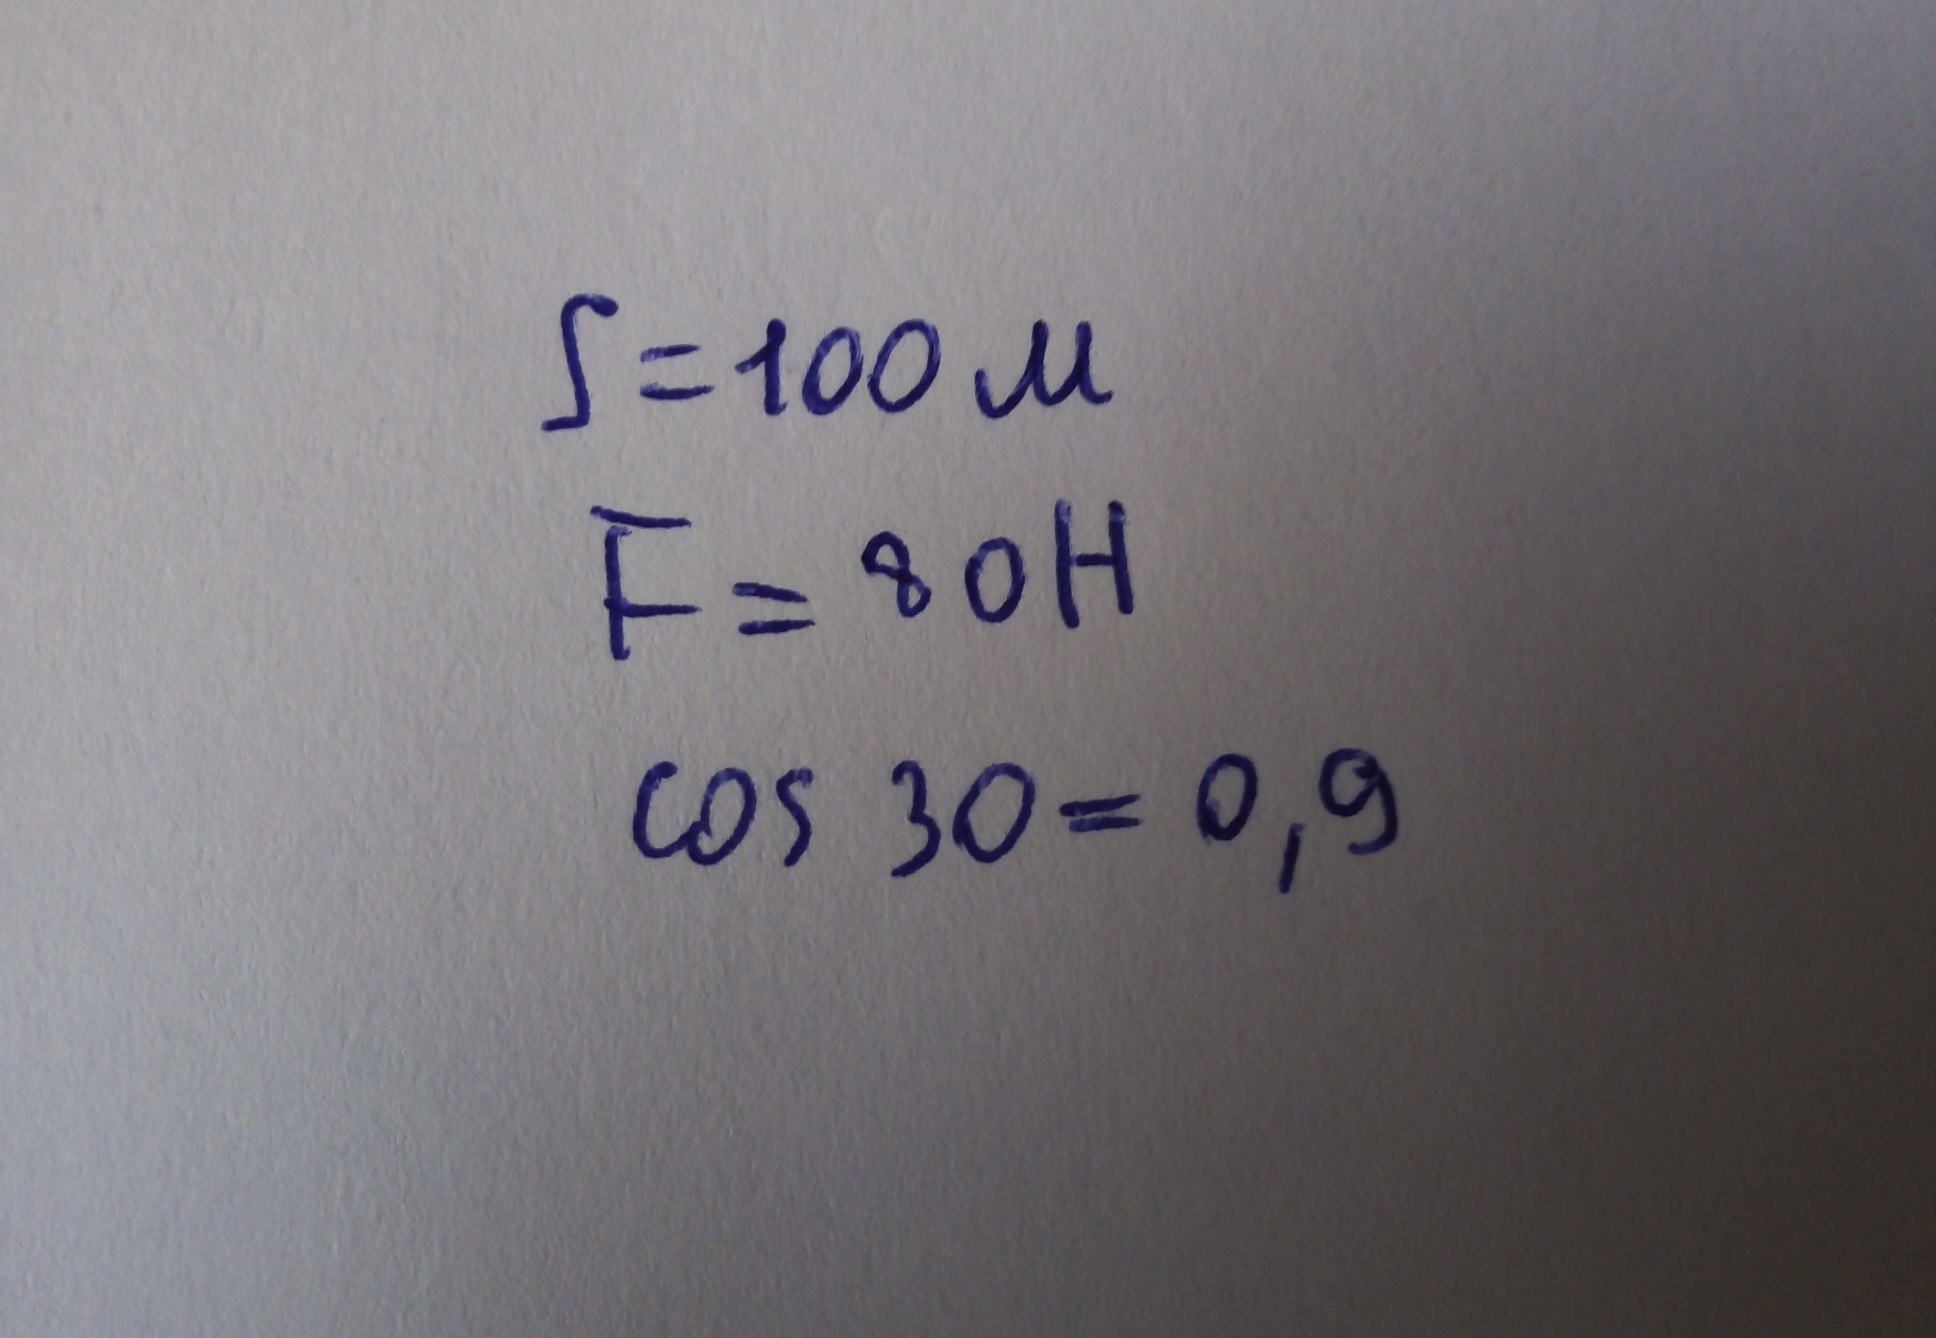 S=100 м
F=80H
cos 30=0,9